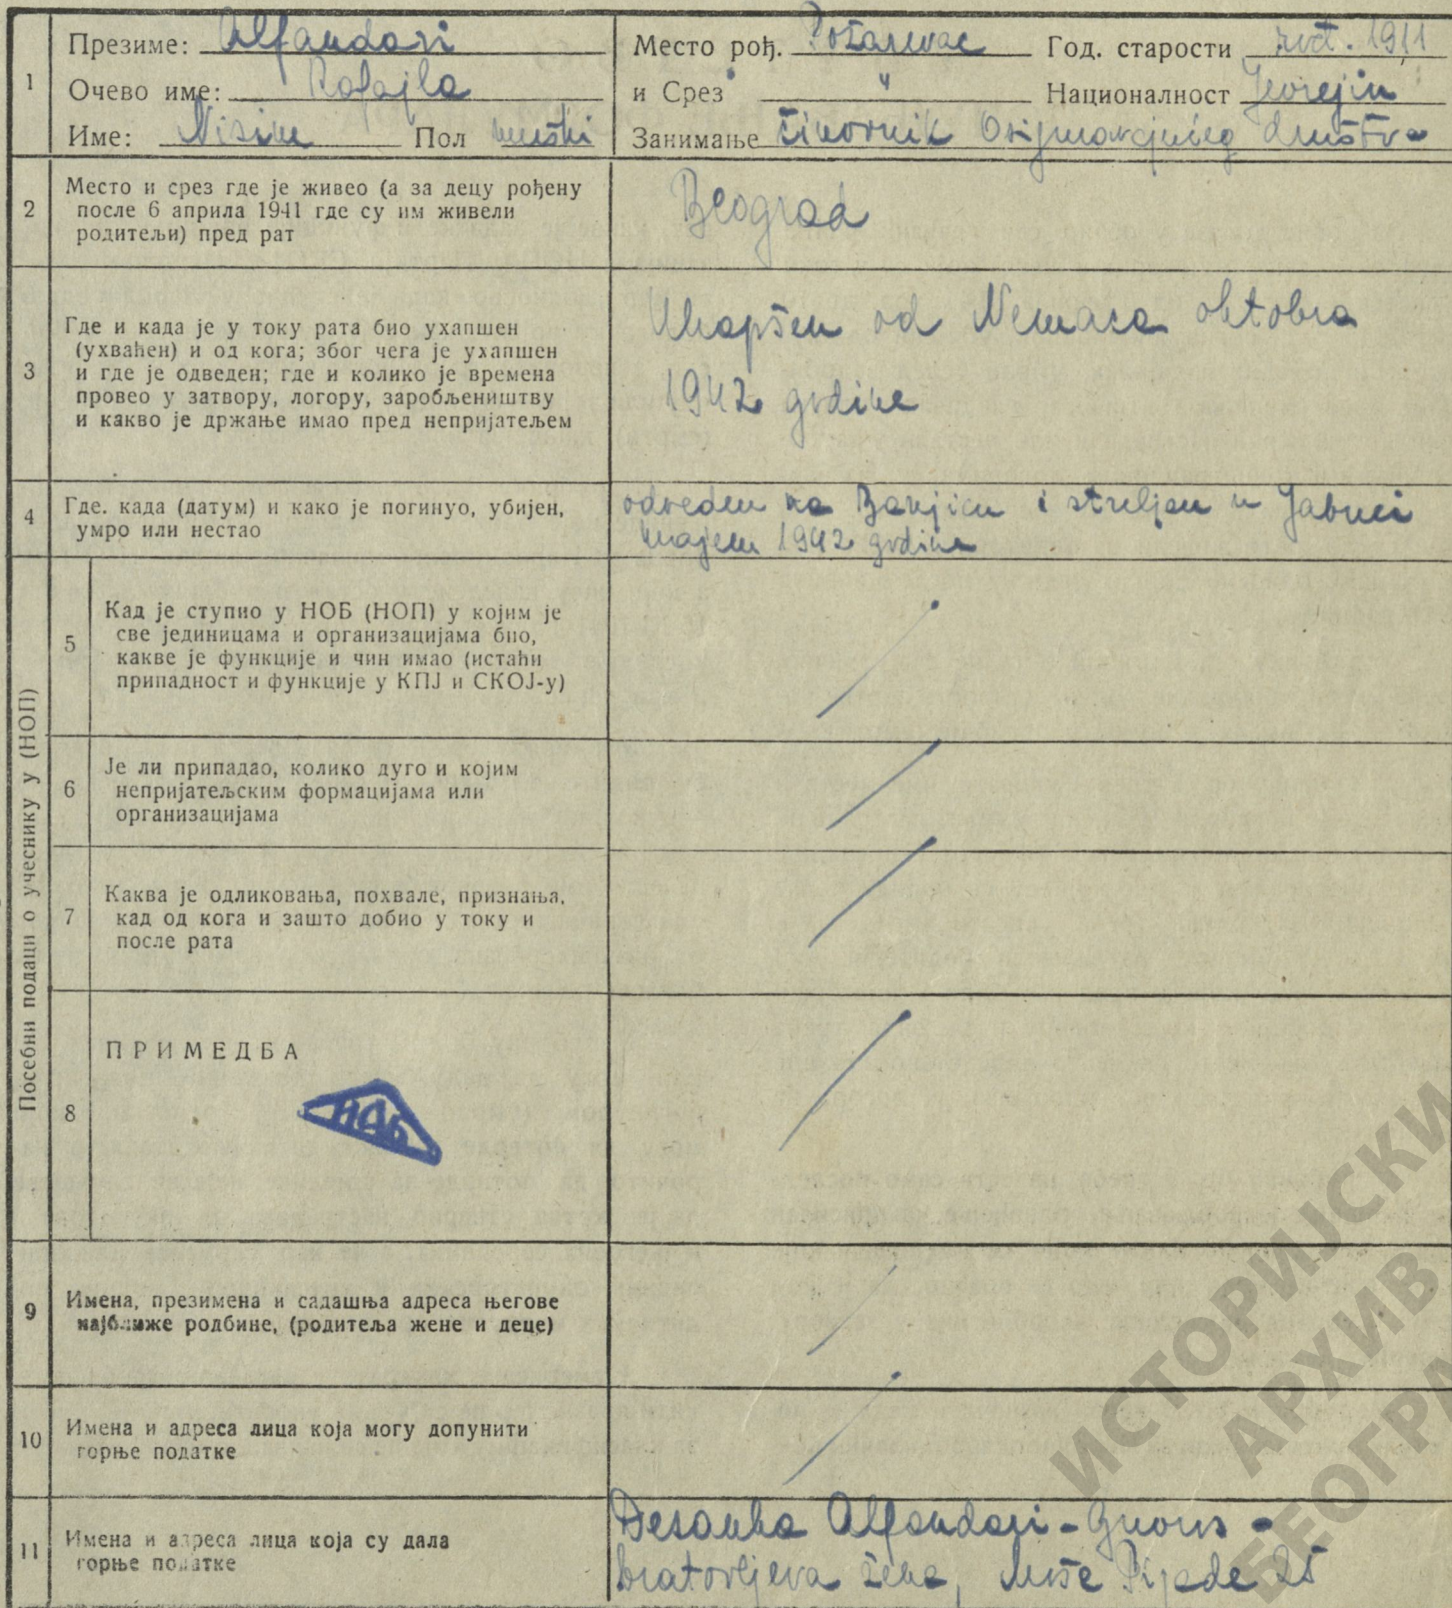 1
Презиме: Alfandari
Очево име: Rafajla
Име: Nisim Пол muški
Место рођ. Požarevac Год. старости rođ. 1911
и Срез " Националност Jevrejin
Занимање činovnik Osiguravajućeg društva
2
Место и срез где је живео (а за децу рођену
после 6 априла 1941 где су им живели
родитељи) пред рат
Beograd
3
Где и када је у току рата био ухапшен
(ухваћен) и од кога; због чега је ухапшен
и где је одведен; где и колико је времена
провео у затвору, логору, заробљеништву
и какво је држање имао пред непријатељем
Uhapšen od Nemaca oktobra
1942 godine
4
Где. када (датум) и како је погинуо, убијен,
умро или нестао
odveden na Banjicu i streljan u Jabuci
krajem 1942 godine
Посебни подаци о учеснику у (НОП)
5
Кад је ступио у НОБ (НОП) у којим је
све јединицама и организацијама био,
какве је функције и чин имао (истаћи
припадност и функције у КПЈ и СКОЈ-у)
6
Је ли припадао, колико дуго и којим
непријатељским формацијама или
организацијама
7
Каква је одликовања, похвале, признања,
кад од кога и зашто добио у току и
после рата
8
ПРИМЕДБА
ИАБ
9
Имена, презимена и садашња адреса његове
најближе родбине, (родитеља жене и деце)
10
Имена и адреса лица која могу допунити
горње податке
11
Имена и адреса лица која су дала
горње податке
Desanka Alfandari -
bratovljeva žena, Moše Pijade 25
ИСТОРИЈСКИ
АРХИВ
БЕОГРА